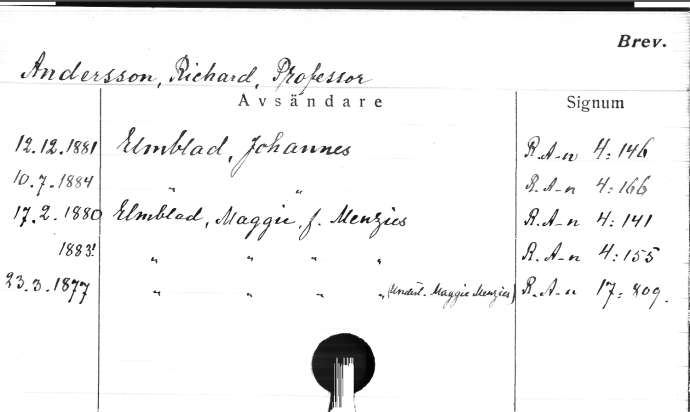 Brev.
Andersson, Richard, Professor
Avsändare Signum
12.12.1881 Elmblad, Johannes R.A-n 4:146
10.7.1884 " " R.A-n 4:166
17.2.1880 Elmblad, Maggie, f. Menzies R.A-n 4:141
1883! " " " " R.A-n 4:155
23.3.1877 " " " " (Undert. Maggie Menzies) R.A-n 17:809.